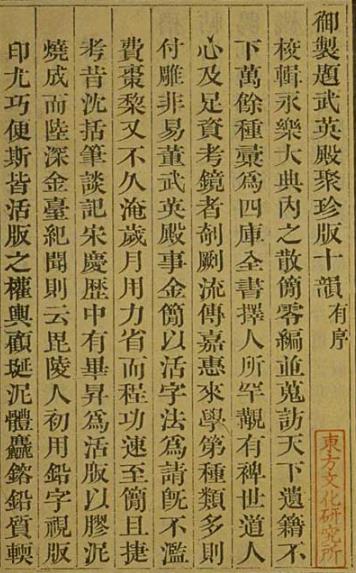 御製題武英殿聚珍版十韻有序
校輯永樂大典內之散簡零編並蒐訪天下遺籍不
下萬餘種彚為四庫全書擇人所罕覯有裨世道人
心及足資考鏡者剞劂流傳嘉惠來學第種類多則
付雕非易董武英殿事金簡以活字法為請既不濫
費棗棃又不久淹歲月用力省而程功速至簡且捷
考昔沈括筆談記宋慶歴中有畢昇為活版以膠泥
燒成而陸深金臺紀聞則云毘陵人初用鉛字視版
印尤巧便斯皆活版之權輿顧埏泥體麤鎔鉛質輭
東方文化研究所